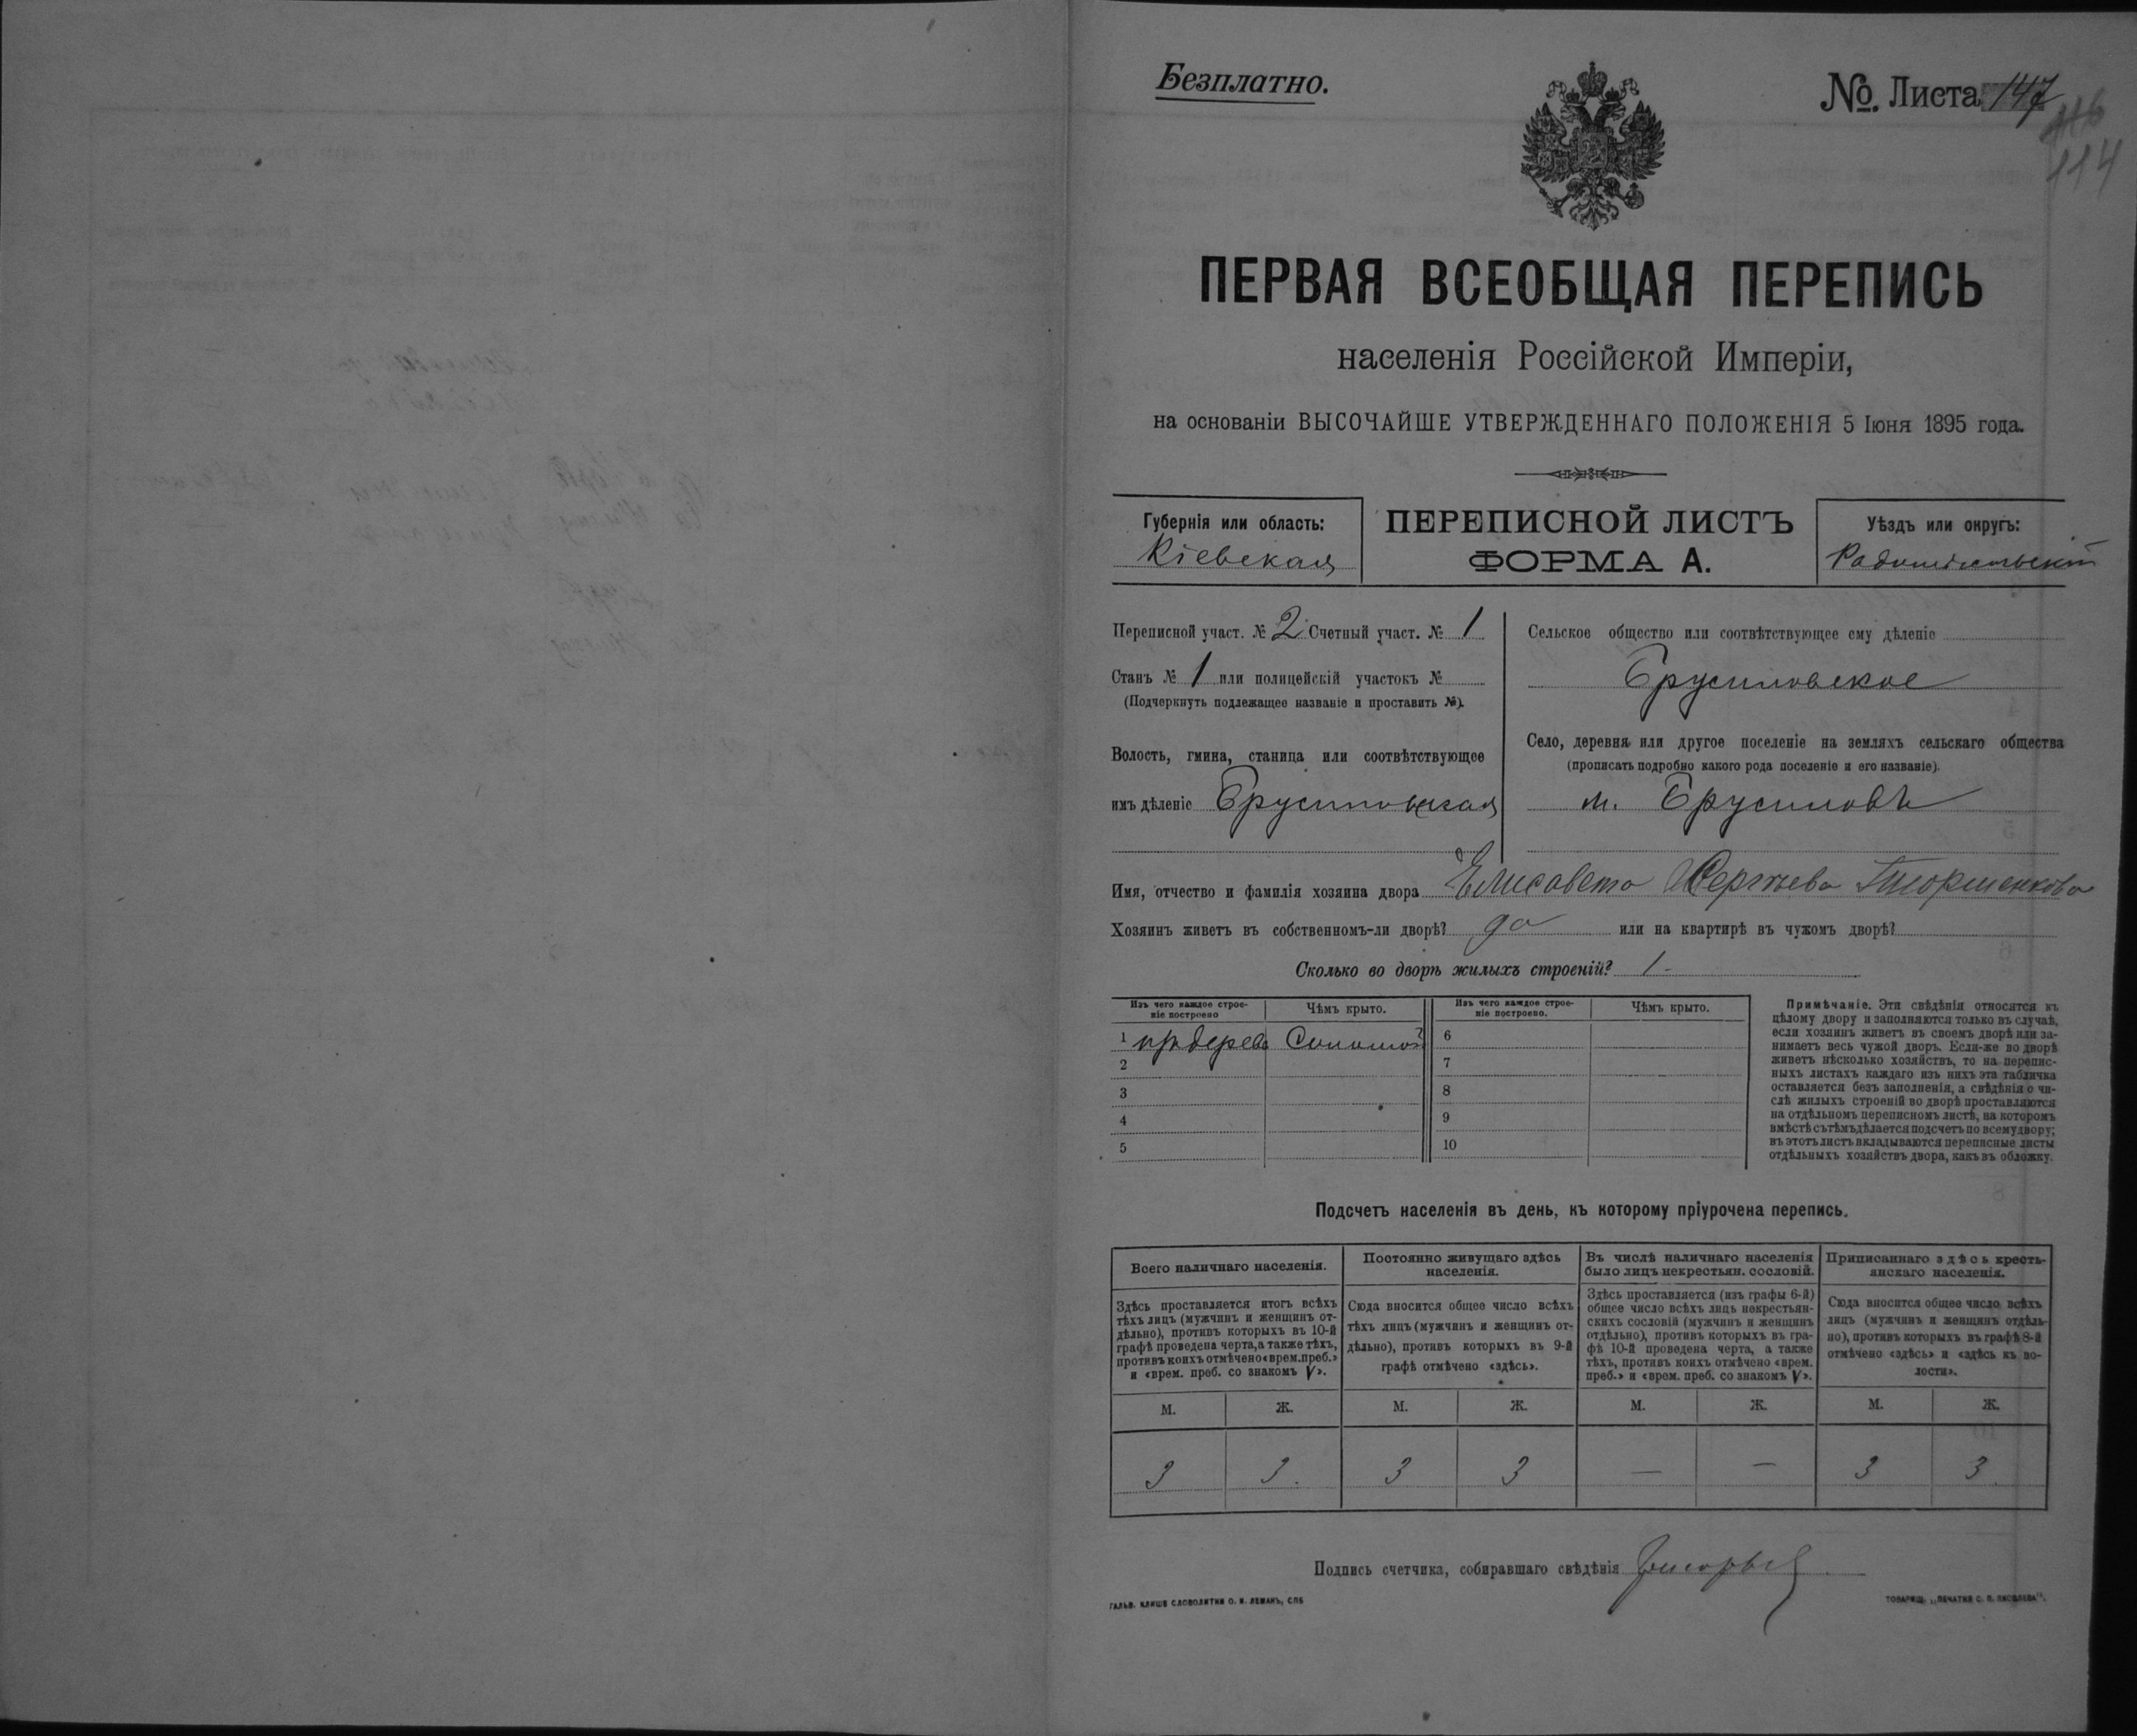 Безплатно.
№. Листа 147
114
ПЕРВАЯ ВСЕОБЩАЯ ПЕРЕПИСЬ
населенія Россійской Имперіи,
на основаніи ВЫСОЧАЙШЕ УТВЕРЖДЕННАГО ПОЛОЖЕНІЯ 5 Іюня 1895 года.
Губернія или область:
Кіевская
ПЕРЕПИСНОЙ ЛИСТЪ
ФОРМА А.
Уѣздъ или округъ:
Радомысльскій
Переписной участ. № 2 Счетный участ. № 1
Станъ № 1 или полицейскій участокъ №
(Подчеркнуть подлежащее названіе и проставить №).
Волость, гмина, станица или соотвѣтствующее
имъ дѣленіе Брусиловская
Сельское общество или соотвѣтствующее ему дѣленіе
Брусиловское
Село, деревня или другое поселеніе на земляхъ сельскаго общества
(прописать подробно какого рода поселеніе и его названіе).
м. Брусиловъ
Имя, отчество и фамилія хозяина двора Елисавета Сергѣева
Хозяинъ живетъ въ собственномъ-ли дворѣ? да или на квартирѣ въ чужомъ дворѣ?
Сколько во дворѣ жилыхъ строеній? 1.
Изъ чего каждое строе-
ніе построено
Чѣмъ крыто.
Изъ чего каждое строе-
ніе построено.
Чѣмъ крыто.
1
6
2
7
3
8
4
9
5
10
Примѣчаніе. Эти свѣдѣнія относятся къ
цѣлому двору и заполняются только въ случаѣ,
если хозяинъ живетъ въ своемъ дворѣ или за-
нимаетъ весь чужой дворъ. Если-же во дворѣ
живетъ нѣсколько хозяйствъ, то на перепис-
ныхъ листахъ каждаго изъ нихъ эта табличка
оставляется безъ заполненія, а свѣдѣнія о чи-
слѣ жилыхъ строеній во дворѣ проставляются
на отдѣльномъ переписномъ листѣ, на которомъ
вмѣстѣ съ тѣмъ дѣлается подсчетъ по всему двору;
въ этотъ листъ вкладываются переписные листы
отдѣльныхъ хозяйствъ двора, какъ въ обложку.
Подсчетъ населенія въ день, къ которому пріурочена перепись.
Всего наличнаго населенія.
Постоянно живущаго здѣсь
населенія.
Въ числѣ наличнаго населенія
было лицъ некрестьян. сословій.
Приписаннаго здѣсь кресть-
янскаго населенія.
Здѣсь проставляется итогъ всѣхъ
тѣхъ лицъ (мужчинъ и женщинъ от-
дѣльно), противъ которыхъ въ 10-й
графѣ проведена черта, а также тѣхъ,
противъ коихъ отмѣчено «врем. преб.»
и «врем. преб. со знакомъ V».
Сюда вносится общее число всѣхъ
тѣхъ лицъ (мужчинъ и женщинъ от-
дѣльно), противъ которыхъ въ 9-й
графѣ отмѣчено «здѣсь».
Здѣсь проставляется (изъ графы 6-й)
общее число всѣхъ лицъ некрестьян-
скихъ сословій (мужчинъ и женщинъ
отдѣльно), противъ которыхъ въ гра-
фѣ 10-й проведена черта, а также
тѣхъ, противъ коихъ отмѣчено «врем.
преб.» и «врем. преб. со знакомъ V».
Сюда вносится общее число всѣхъ
лицъ (мужчинъ и женщинъ отдѣль-
но), противъ которыхъ въ графѣ 8-й
отмѣчено «здѣсь» и «здѣсь къ во-
лости».
М. Ж. М. Ж. М. Ж. М. Ж.
3 3. 3 3 — — 3 3.
Подпись счетчика, собиравшаго свѣдѣнія
ГАЛЬВ. КЛИШЕ СЛОВОЛИТНИ О. И. ЛЕМАНЪ, СПБ
ТОВАРИЩ. „ПЕЧАТНЯ С. П. ЯКОВЛЕВА".